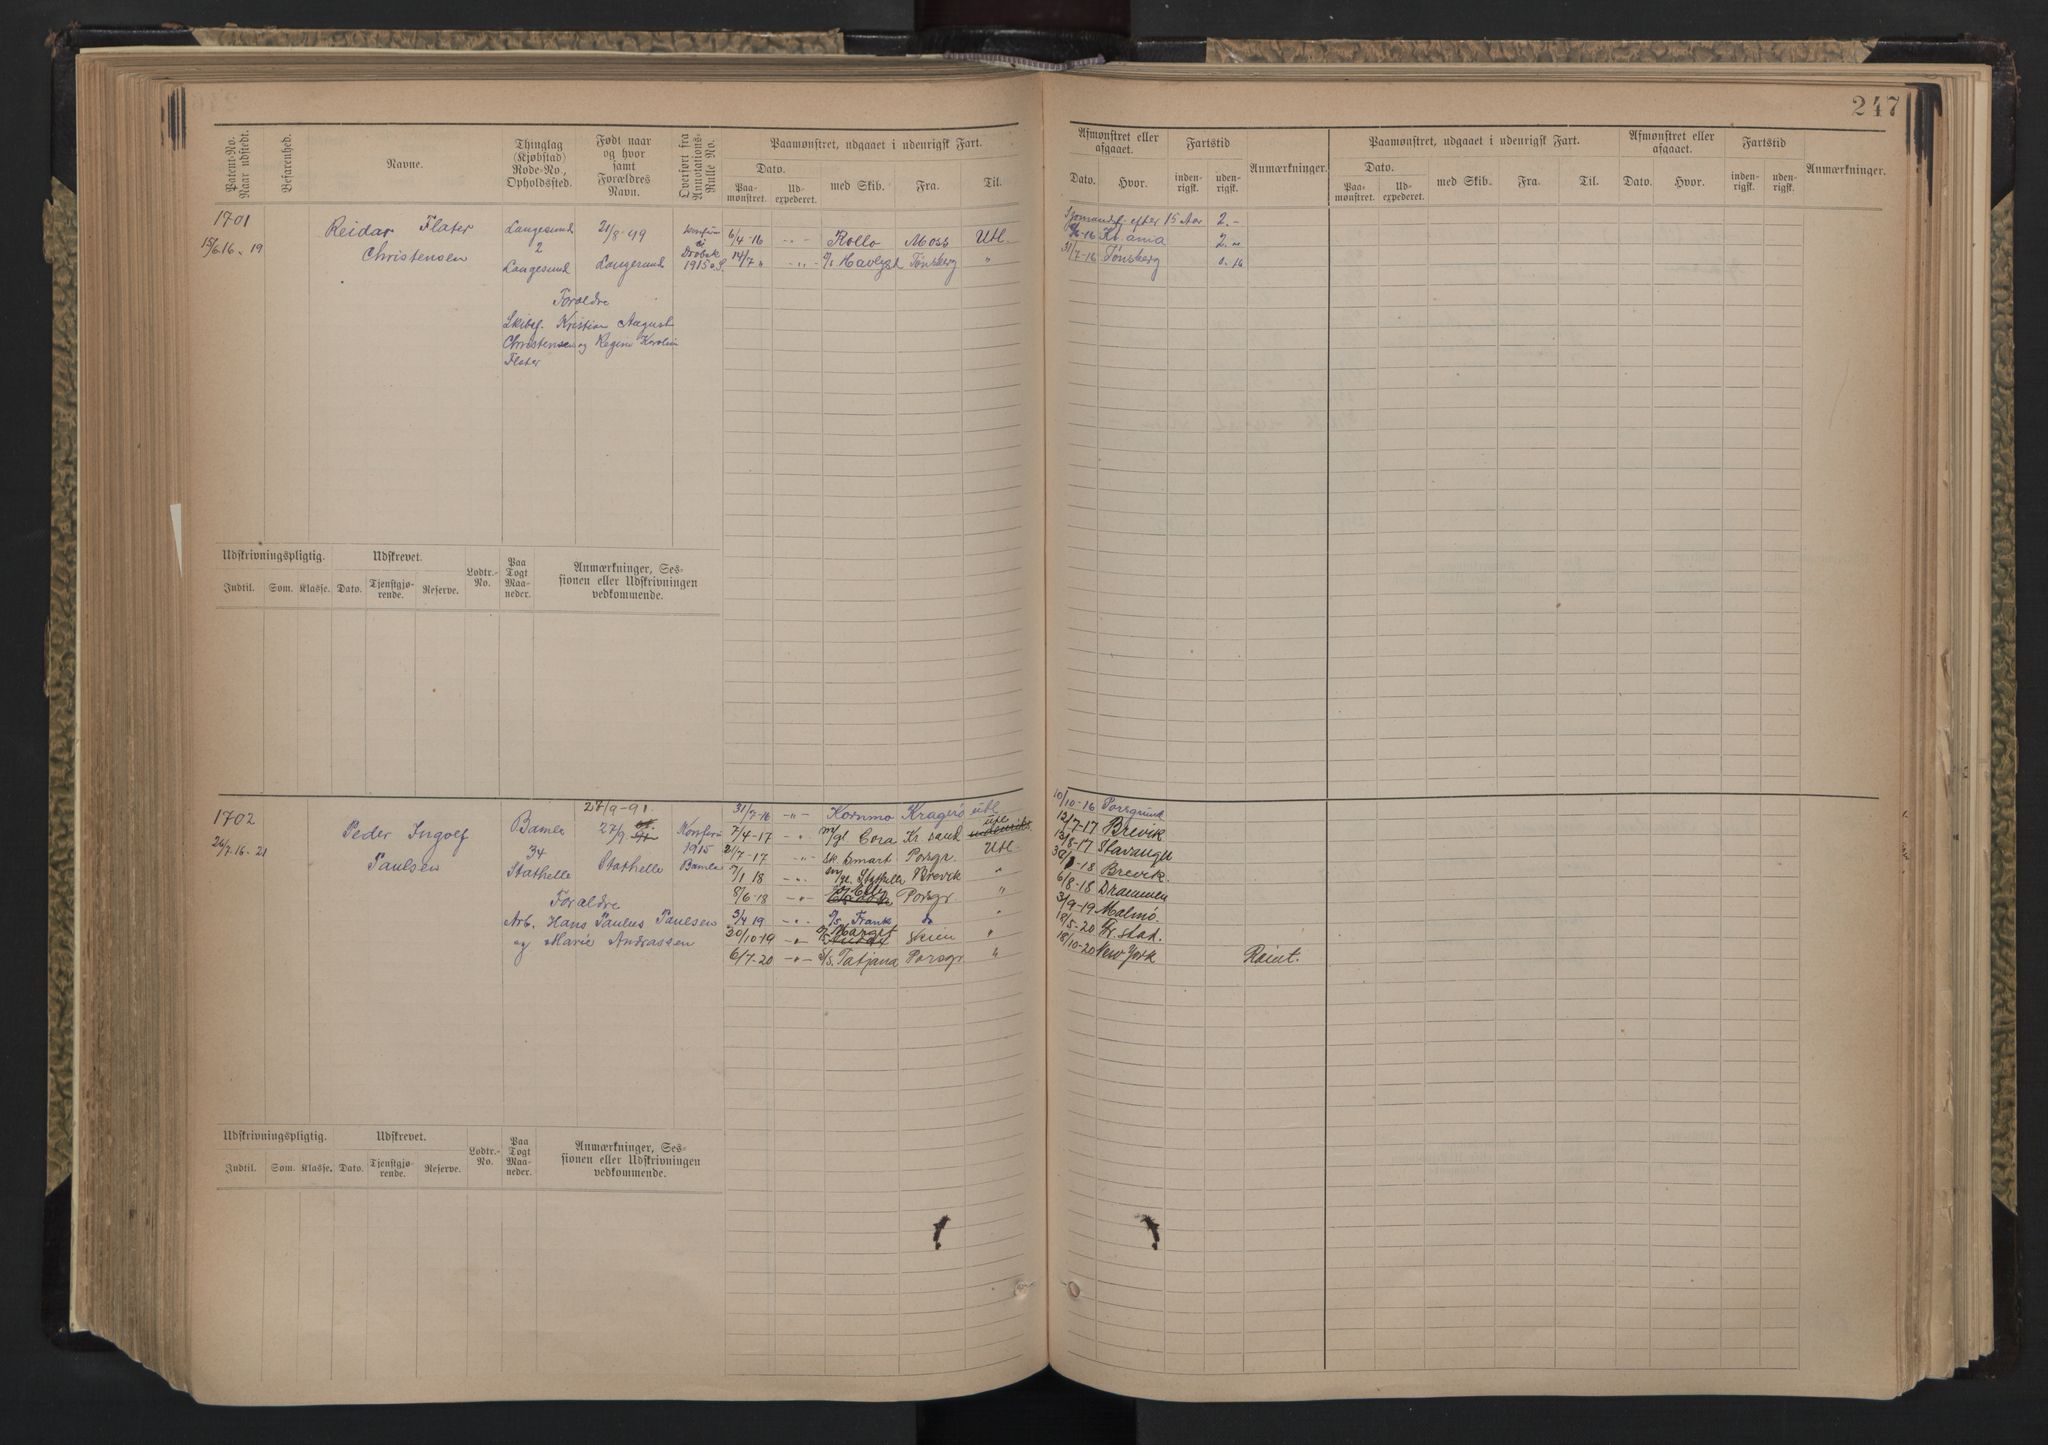 247
Patent-No. Naar udstedt.
Befarenhed.
Navne.
Thinglag (Kjøbstad) Rode-No., Opholdssted.
Født naar og hvor samt Forældres Navn.
Overført fra Annotations-Rulle No.
Paamønstret, udgaaet i udenrigsk Fart.
Dato.
Paamønstret.
Udexpederet.
med Skib.
Fra.
Til.
Afmønstret eller afgaaet.
Dato.
Hvor.
Fartstid
indenrigsk.
udenrigsk.
Anmærkninger.
Paamønstret, udgaaet i udenrigsk Fart.
Dato.
Paamønstret.
Udexpederet.
med Skib.
Fra.
Til.
Afmønstret eller afgaaet.
Dato.
Hvor.
Fartstid
indenrigsk.
udenrigsk.
Anmærkninger.
1701
15/6.16.19
Reidar Flater
Christensen
Langesund
2
Langesund
21/8-99
Langesund
Drøbak
1915
Forældre
Skibsf. Kristian August
Christensen og Regine Karolin
Flater
6/4-16 -"- Rollo Moss Utl.
14/7 " -"- Havlyst Tønsberg "
Sjømandsf. efter 15 Aar 2.-
6-16 Kr.ania 2.-
31/7-16 Tønsberg 0.16
Udskrivningspligtig.
Udskrevet.
Lodtr.-No.
Paa Togt Maaneder.
Anmærkninger, Sessionen eller Udskrivningen vedkommende.
Indtil.
Som.
Klasse.
Dato.
Tjenstgjørende.
Reserve.
1702
26/7.16.21
Peder Ingolf
Paulsen
Bamle
34
Stathelle
27/9-91.
27/9
Stathelle
1915
Bamle
Forældre
Arb. Hans Paulus Paulsen
og Marie Andrassen
31/7-16 -"- Kornmo Kragerø utl
7/4-17 -"- m/gl Cora Kr sand utl
21/7-17 -"- sk. Smart Porsgr. Utl.
7/1 18 -"- Stathelle Brevik "
8/6-18 -"- Porsgr. "
3/4 19 -"- s/s. Frank do "
20/10-19 -"- Skien "
6/7-20 -"- s/s. Tatjana Porsgr "
10/10-16 Porsgrund
12/7-17 Brevik
13/8-17 Stavanger
18 Brevik.
6/8-18 Drammen
3/9-19 Malmø.
18/5-20 Fr.stad.
18/10-20 New York
Udskrivningspligtig.
Udskrevet.
Lodtr.-No.
Paa Togt Maaneder.
Anmærkninger, Sessionen eller Udskrivningen vedkommende.
Indtil.
Som.
Klasse.
Dato.
Tjenstgjørende.
Reserve.